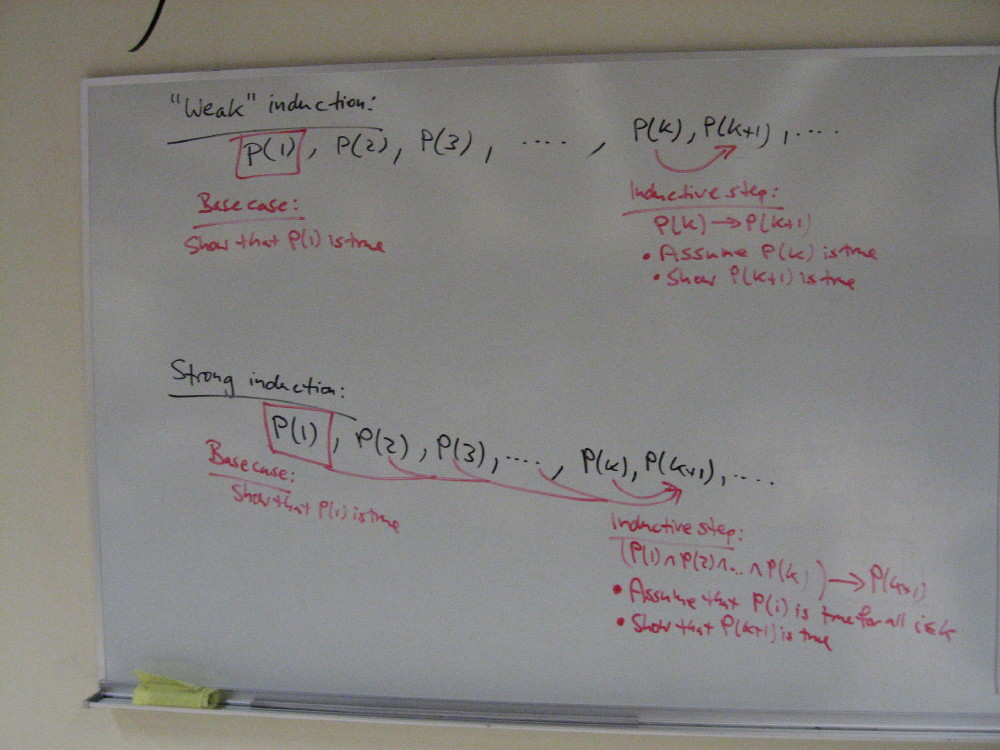 "Weak" induction:
P(1), P(2), P(3), ····, P(k), P(k+1), ····
Base case:
Show that P(1) is true
Inductive step:
P(k) → P(k+1)
• Assume P(k) is true
• Show P(k+1) is true
Strong induction:
P(1), P(2), P(3), ····, P(k), P(k+1), ····
Base case:
Show that P(1) is true
Inductive step:
(P(1) ∧ P(2) ∧ ... ∧ P(k)) → P(k+1)
• Assume that P(i) is true for all i≤k
• Show that P(k+1) is true